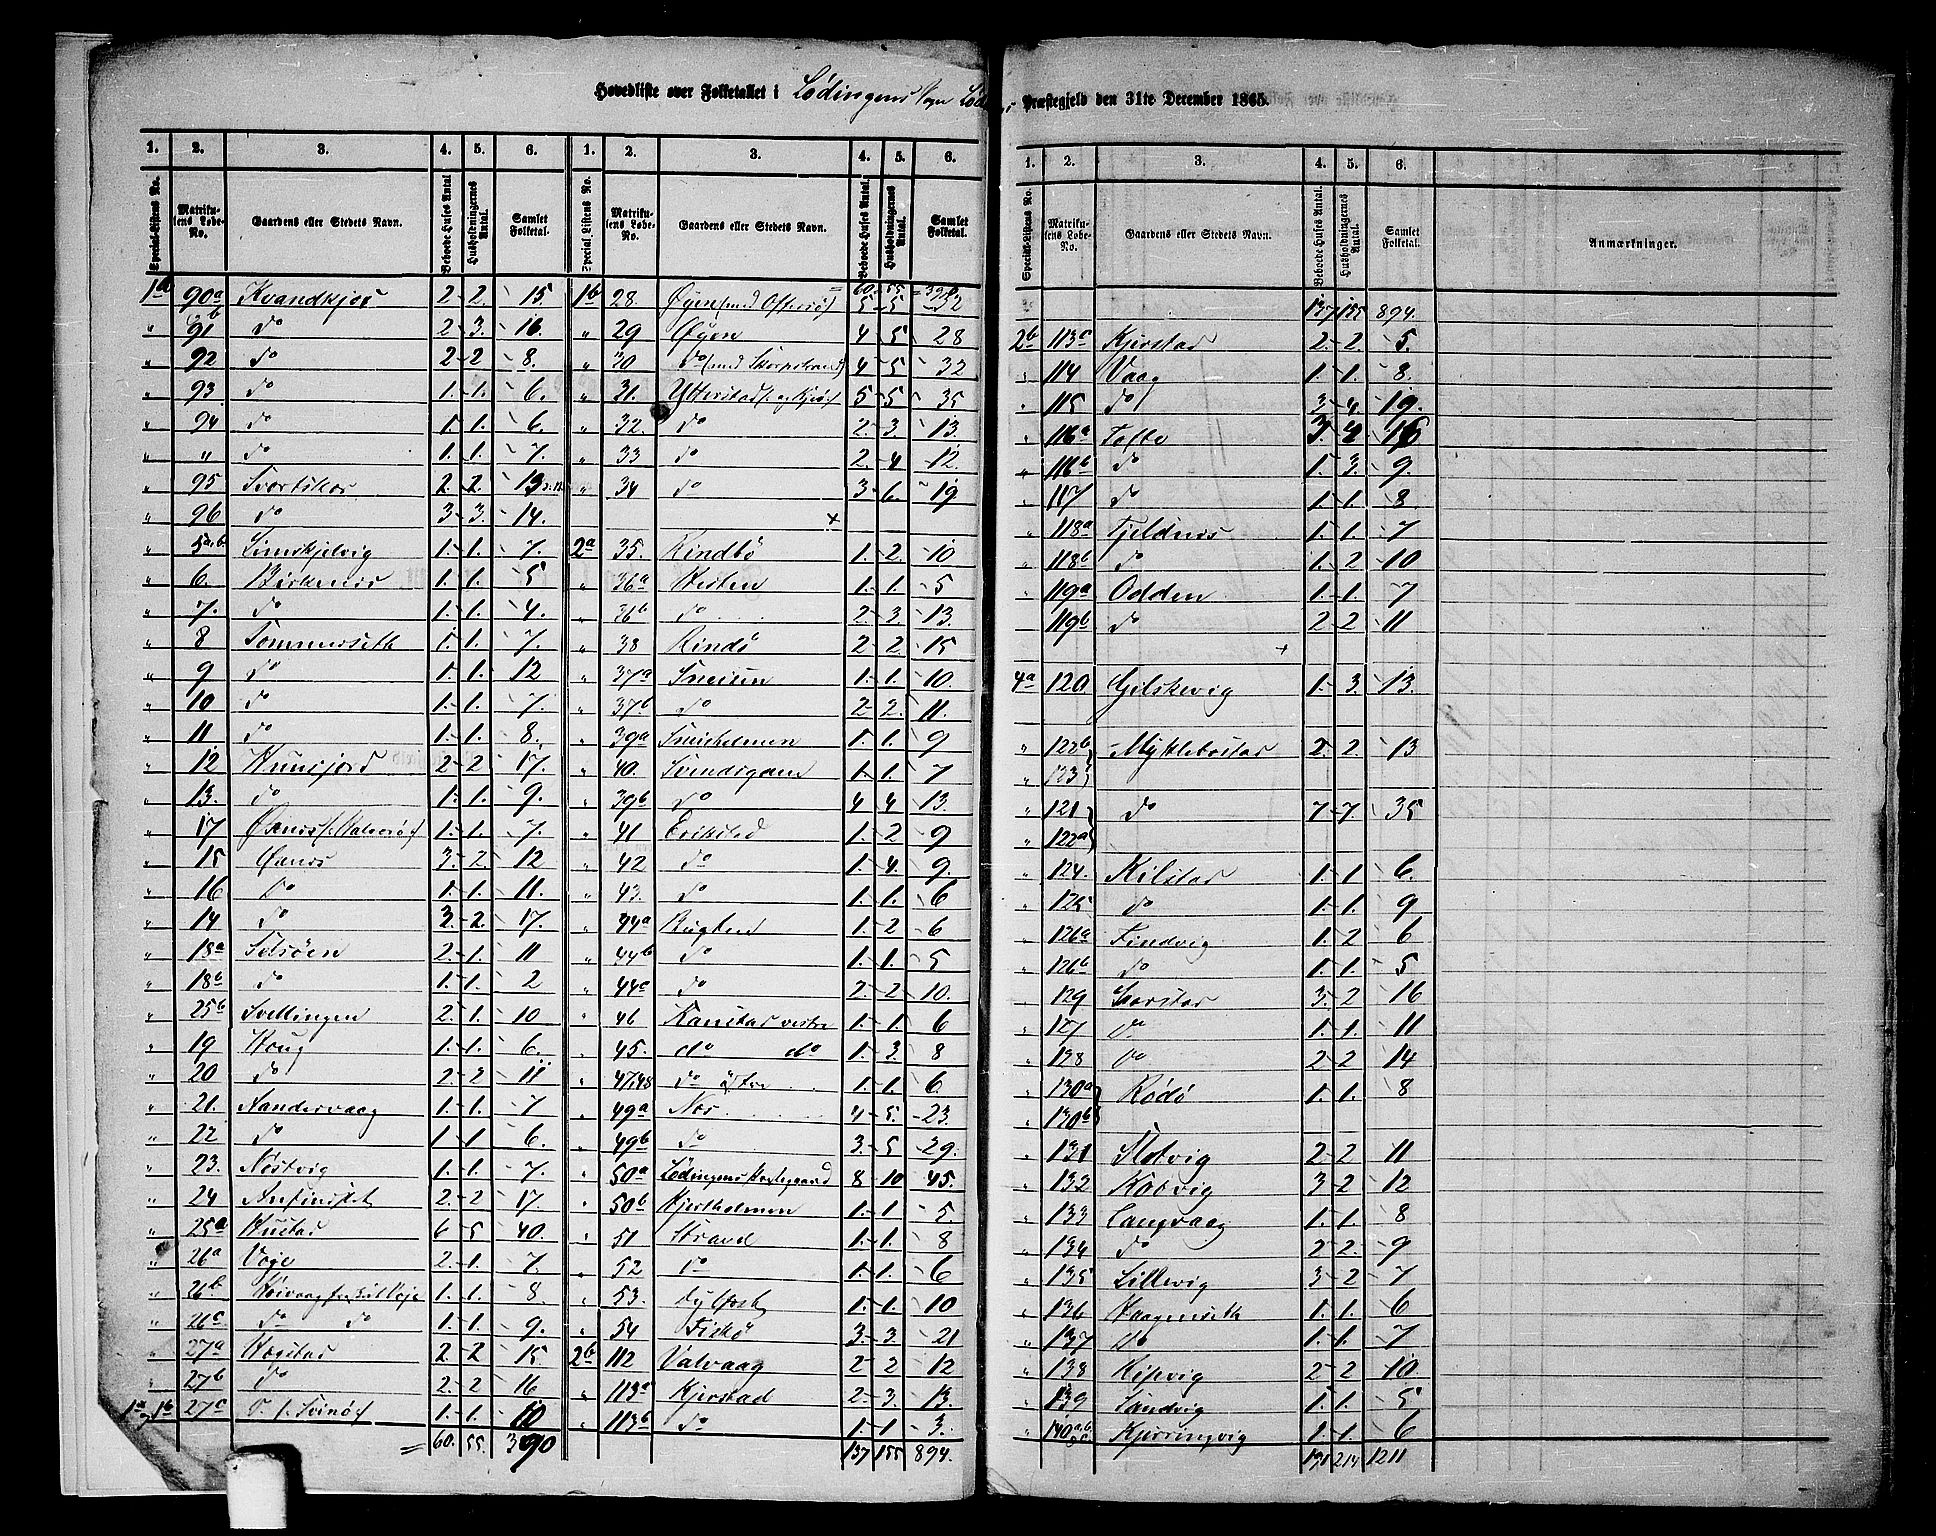 Hovedliste over Folketallet i Lødingens Sogn Præstegjeld den 31te December 1865.
1. 2. 3. 4. 5. 6. 1. 2. 3. 4. 5. 6.
Special-Listens No. Matrikulens Løbe-No. Gaardens eller Stedets Navn. Beboede Huses Antal Husholdningernes Antal. Samlet Folketal. Special-Listens No. Matrikulens Løbe-No. Gaardens eller Stedets Navn. Beboede Huses Antal. Husholdningernes Antal. Samlet Folketal.
1a 90a 2 2 15.
" 91 do 2 3. 16.
" 92 do 2 2 8.
" 93 do 1. 1. 6.
" 94 do 1. 1. 6.
" " do 1. 1. 7.
" 95 2. 2. 13
" 96 do 3 3. 14.
" 5a,b. 1. 1. 7.
" 6. 1. 1. 5
" 7. do 1. 1. 4.
" 8 Sommerseth 1. 1. 7.
" 9 do 1. 1. 12
" 10 do 1. 1. 7.
" 11 do 1. 1. 8.
" 12 2 2 17.
" 13. do 1. 1. 9.
" 17 1. 1. 7.
" 15 3. 2. 12
" 16 Do 1. 1. 11.
" 14 do 3. 2. 17.
" 18a 2. 1. 11
" 18b do 1. 1. 2
" 25b Svellingen 2. 1. 10
" 19 Houg 1. 1. 6.
" 20 do 2 2 11
" 21. Nandervaag 1. 1. 7
" 22 do 1. 1. 6.
" 23. Nostvig 1. 1. 7.
" 24 2. 2 17.
" 25a Hustad 6 5 40.
" 26a Voge 2. 1. 7.
" 26b 1. 1. 8.
" 26c do do 1. 1. 9.
" 27a 2. 2 15
" 27b do 2. 2 16
1a 1b 27c Do (Svinø) 1. 1. 10
= 60. 55. 390
60 55 =390
1b 28. Øyen 5 5 52
" 29 Øyen 4 5 28
" 30 do 4 5 32
" 31. 5 5 35
" 32. do 2. 3. 13.
" 33 do 2. 4 12.
" 34 do 3 6. 19
+
2a 35. Rindbø 1. 2. 10
" 36a Hesten 1. 1. 5
" 36b do 2 3 13.
" 38 Rindø 2 2 15
" 37a 1. 1. 10.
" 37b do 2 2. 11.
" 39a 1. 1. 9
" 40. 1. 1. 7
" 39b do 4 4 13.
" 41 Erikstad 1. 2 9
" 42 do 1. 4. 9.
" 43. do 1. 1. 6
" 44a Rugten 1. 2 6
" 44b do 1. 1. 5
" 44a do 2. 2 10.
" 46 Kanstad vestre 1. 1. 6
" 45. do do 1. 3. 8
" 47,48 do östre 1. 1. 6.
" 49a Nes 4 5. 23.
" 49b do 3. 5 29.
" 50a Lödingens Prestegaard 8 10 45.
" 50b Hjertholmen 1. 1. 5.
" 51 Strand 1. 1. 8
" 52 Do 1. 1. 6
" 53. 1. 1. 10
" 54 Fiskø 3. 3. 21
2b 112 Valvaag 2 2 12
" 113a Kjerstad 2 3. 13.
" 113b do 1. 1 3.
137 155 894.
1. 2. 3. 4. 5. 6.
Special-Listens No. Matrikulens Løbe-No. Gaardens eller Stedets Navn. Beboede Huses Antal. Husholdningernes Antal. Samlet Folketal. Anmærkninger.
137 155 894.
2b 113c Kjerstad 2. 2. 5.
" 114 Vaag 1. 1. 8.
" 115 do 3 4. 19.
" 116a Tofte 3. 16
" 116b do 1. 3. 9.
" 117 do 1. 1. 8
" 118a Tjeldnes 1. 1. 7
" 118b do 1. 2 10
" 119a Odden 1. 1. 7
119b do 2 2 11
+
4a 120 Gilskevig 1. 3. 13.
" 122b Myklebostad 2. 2. 13
" 123
" 121 do 7 7. 35
" 122a
" 124. Kilstad 1. 1. 6.
" 125 do 1. 1. 9
" 126a Findvig 1. 2 6
" 126b do 1. 1. 5
" 129 3. 2 16
" 127 Do 1. 1. 11
" 128 Do 2 2 14
" 130a Rødø 1. 1. 8
" 130b
" 131 Slotvig 2 2 11
" 132 Kobvig 3 2 12
" 133 Langvaag 1. 1. 8
" 134 do 2 2. 9
" 135 Lillevig 3 2 7
" 136 Haagenseth 1. 1. 6
" 137 Do 1. 1. 7
" 138 2 2 10.
" 139 Sandvig 1. 1. 5
" 140 Kjerringvig 1. 1. 6
191 214 1211